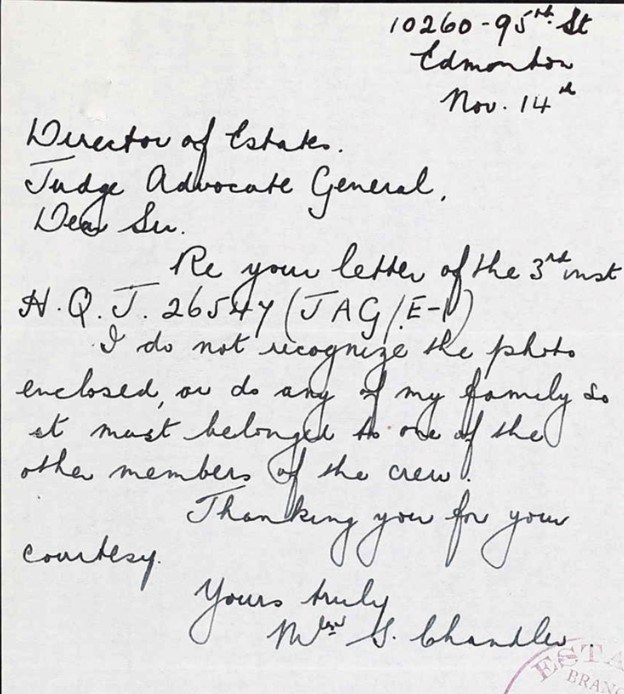 10260-95th St
Edmonton
Nov. 14th
Director of Estates.
Judge Advocate General,
Dear Sir.
Re your letter of the 3rd inst
H.Q.J. 26547 (JAG/E-1)
I do not recognize the photo
enclosed, or do any of my family so
it must belonged to one of the
other members of the crew.
Thanking you for your
courtesy.
Yours truly
Mrs S. Chandler
ESTA
BRAN